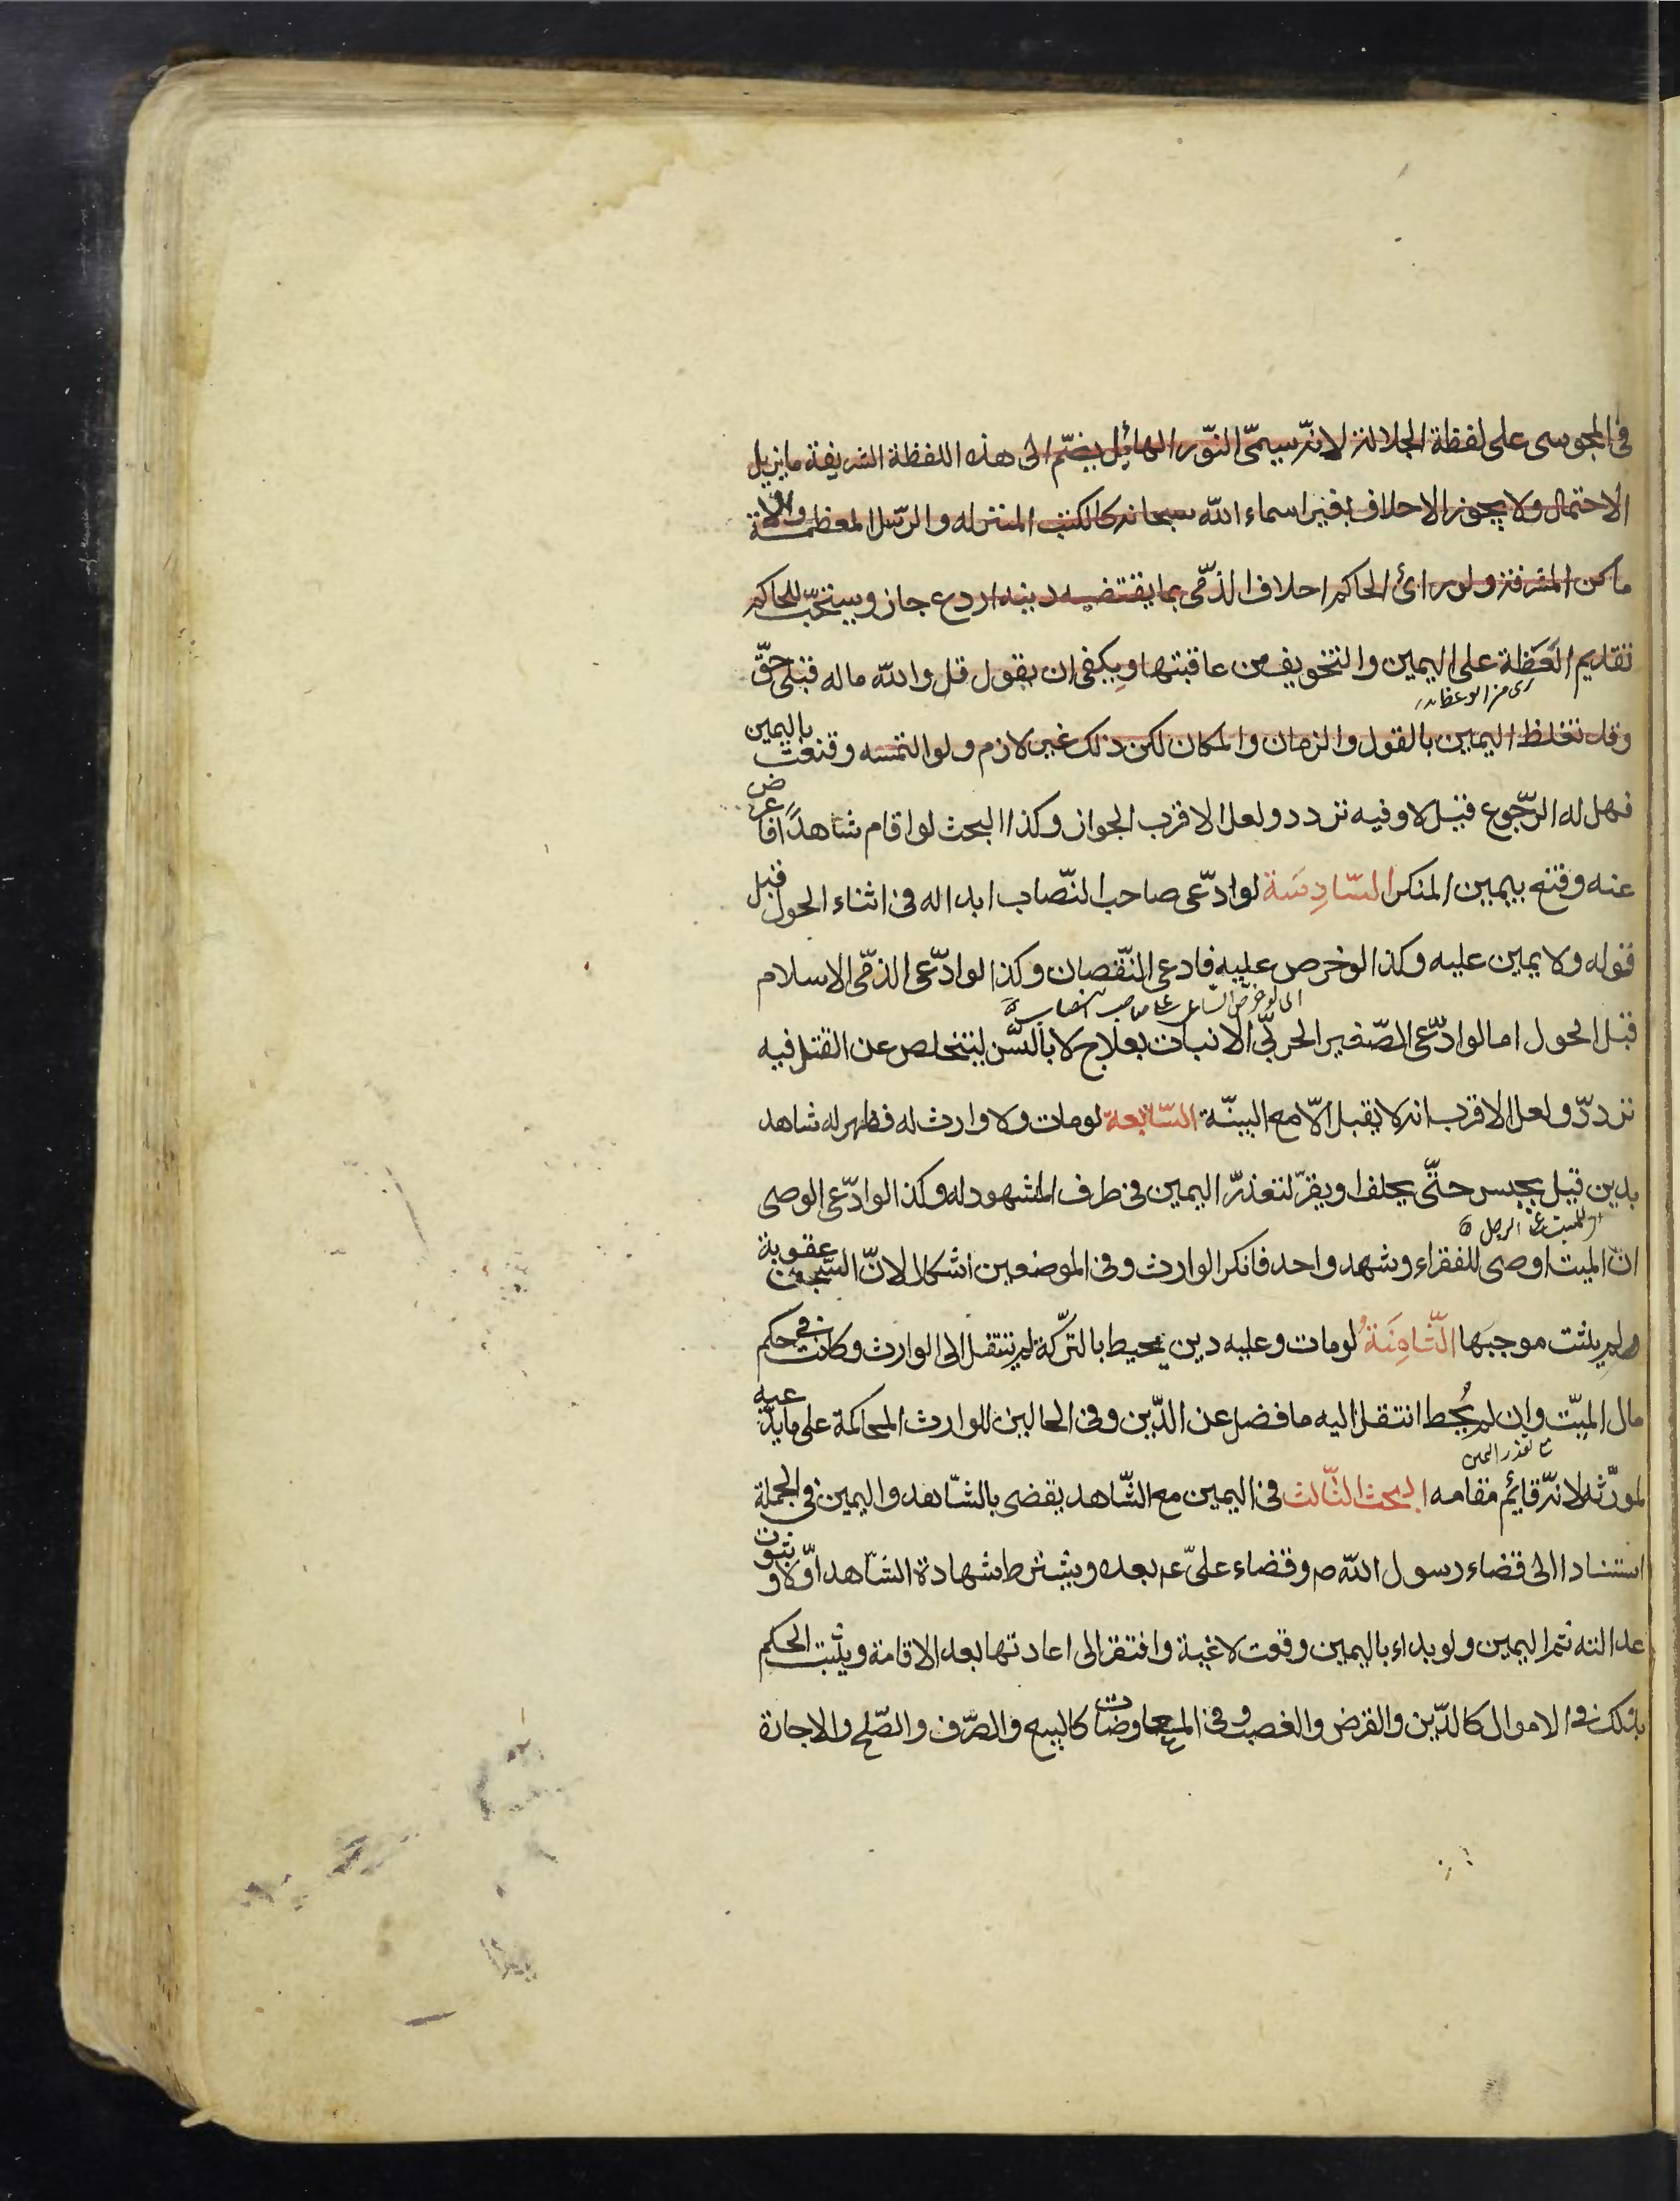 فى المجوسى على لفظة الجلالة لانه سيمّى النّور الهائل بضمّ الى هذه اللفظة الشريفة ما يزيل
الاحتمال ولا يجوز الاحلاف بغير اسماء الله سبحانه كالكتب المنزله والرّسل المعظمة والا
ماكن المشرفة ولو رائ الحاكم احلاف الذمّى بما يقتضيه دينه اردع جاز ويستحبّ للحاكم
تقديم العَظة على اليمين والتخويف من عاقبتها ويكفى ان يقول قل والله ماله قبلى حقّ
وقد تغلظ اليمين بالقول والزمان والمكان لكن ذلك غير لازم ولو التمسه وقنعت باليمين
فهل له الرّجوع قيل لا وفيه تردد ولعل الاقرب الجواز وكذا البحث لو اقام شاهدًا فاعرض
عنه وقنع بيمين المنكر السّادِسَة لو ادّعى صاحب النّصاب ابداله فى اثناء الحول قبل
قوله ولا يمين عليه وكذا لو خرص عليه فادعى النّقصان وكذا لو ادّعى الذمّى الاسلام
قبل الحول اما لو ادّعى الصّغير الحربىّ الانبات بعلاج لا بالسّن ليتخلص عن القتل فيه
تردّد ولعل الاقرب انه لا يقبل الّا مع البينّة السّابعة لو مات ولا وارث له فظهر له شاهد
بدين قيل يحبس حتّى يحلف او يقرّ لتعذرّ اليمين فى طرف المشهود له وكذا لو ادّعى الوصى
انّ الميت اوصى للفقراء وشهد واحد فانكر الوارث وفى الموضعين اشكال لانّ السّجن عقوبة
ولم يثبت موجبَها الثّامِنَةُ لو مات وعليه دين يحيط بالتركة لم ينتقل الى الوارث وكانت فى حكم
مال الميّت وان لم يُحط انتقل اليه ما فضل عن الدّين وفى الحالين للوارث المحاكمة على ما يدّعيه
لمورّثه لانه قائم مقامه البحث الثّالث فى اليمين مع الشّاهد يقضى بالشّاهد واليمين فى الجملة
استنادا الى قضاء رسول الله ص وقضاء علىّ ع بعده ويشترط شهادة الشّاهد اوّلا وثبوت
عدالته ثم اليمين ولو بداء باليمين وقعت لاغية وافتقر الى اعادتها بعد الاقامة ويثبت الحكم
بذلك فى الاموال كالدّين والقرض والغصب وفى المعاوضات كالبيع والصّرف والصّلح والاجارة